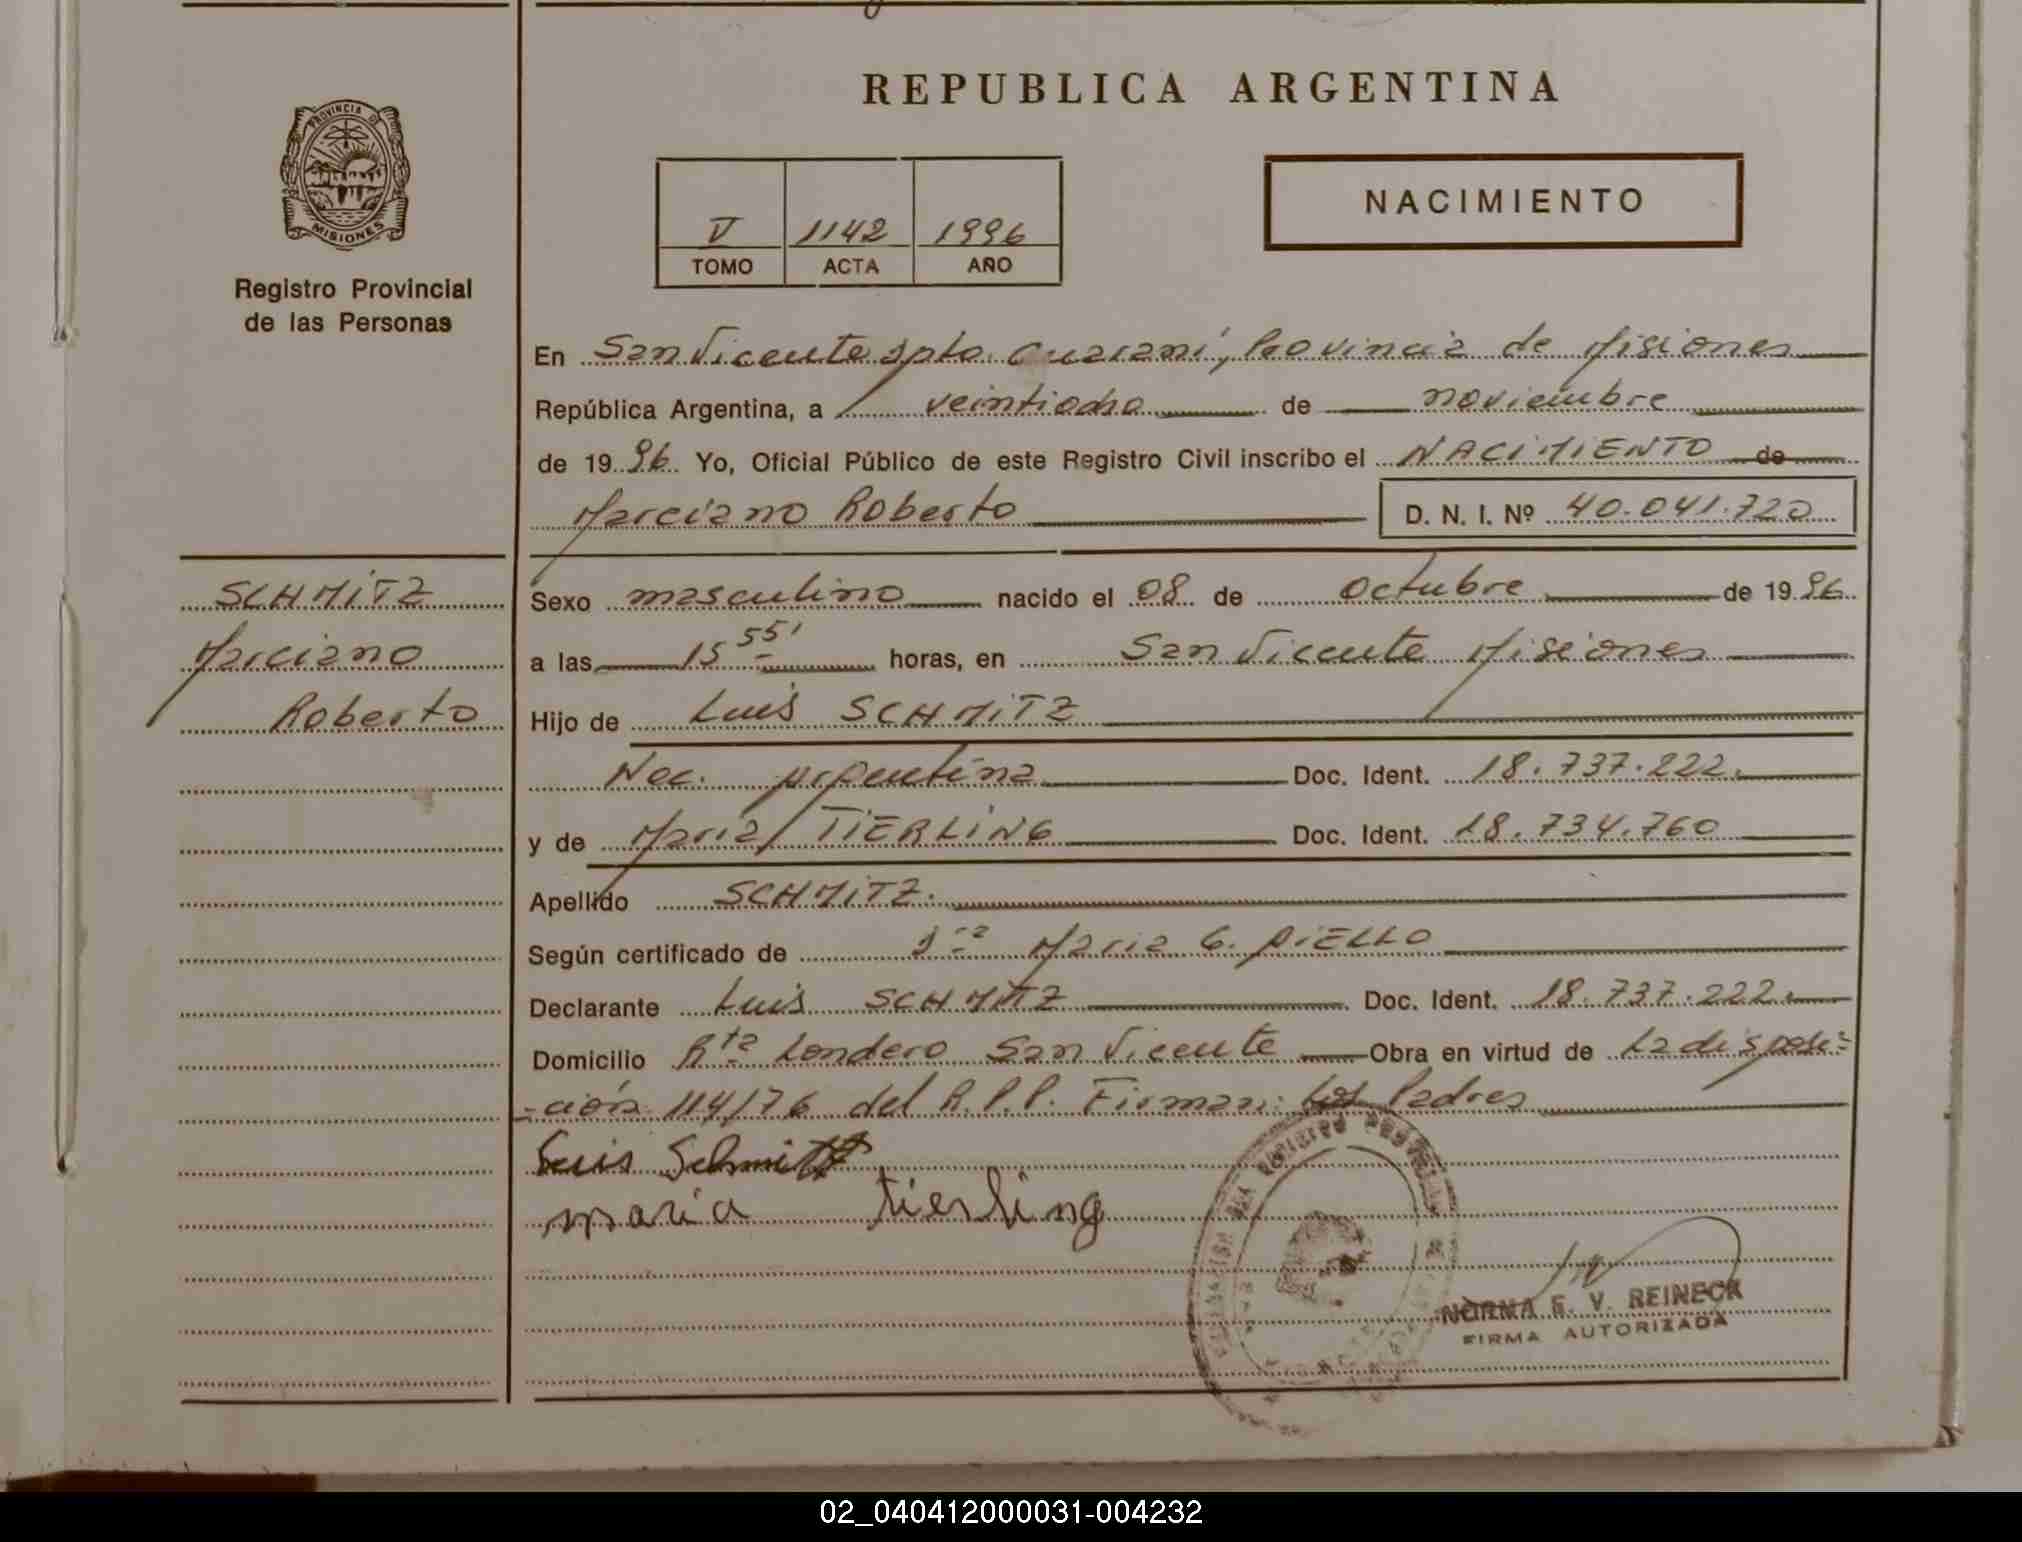 REPUBLICA ARGENTINA
PROVINCIA DE
MISIONES
Registro Provincial
de las Personas
V 1142 1996
TOMO ACTA AÑO
NACIMIENTO
En San Vicente Dpto. Guaraní, Provincia de Misiones
República Argentina, a veintiocho de noviembre
de 1996 Yo, Oficial Público de este Registro Civil inscribo el NACIMIENTO de
Marciano Roberto D. N. I. Nº 40.041.720
SCHMITZ
Marciano
Roberto
Sexo masculino nacido el 08 de octubre de 1996
a las 15 55' horas, en San Vicente Misiones
Hijo de Luis SCHMITZ
Nac. Argentina Doc. Ident. 18.737.222.
y de María TIERLING Doc. Ident. 18.734.760
Apellido SCHMITZ.
Según certificado de Dra Maria G. AIELLO
Declarante Luis SCHMITZ Doc. Ident. 18.737.222.
Domicilio Rta Londero San Vicente Obra en virtud de La disposi-
-ción 114/76 del R.P.P. Firman: los Padres
Luis Schmitz
maria tierling
NORMA E. V. REINECK
FIRMA AUTORIZADA
02_040412000031-004232